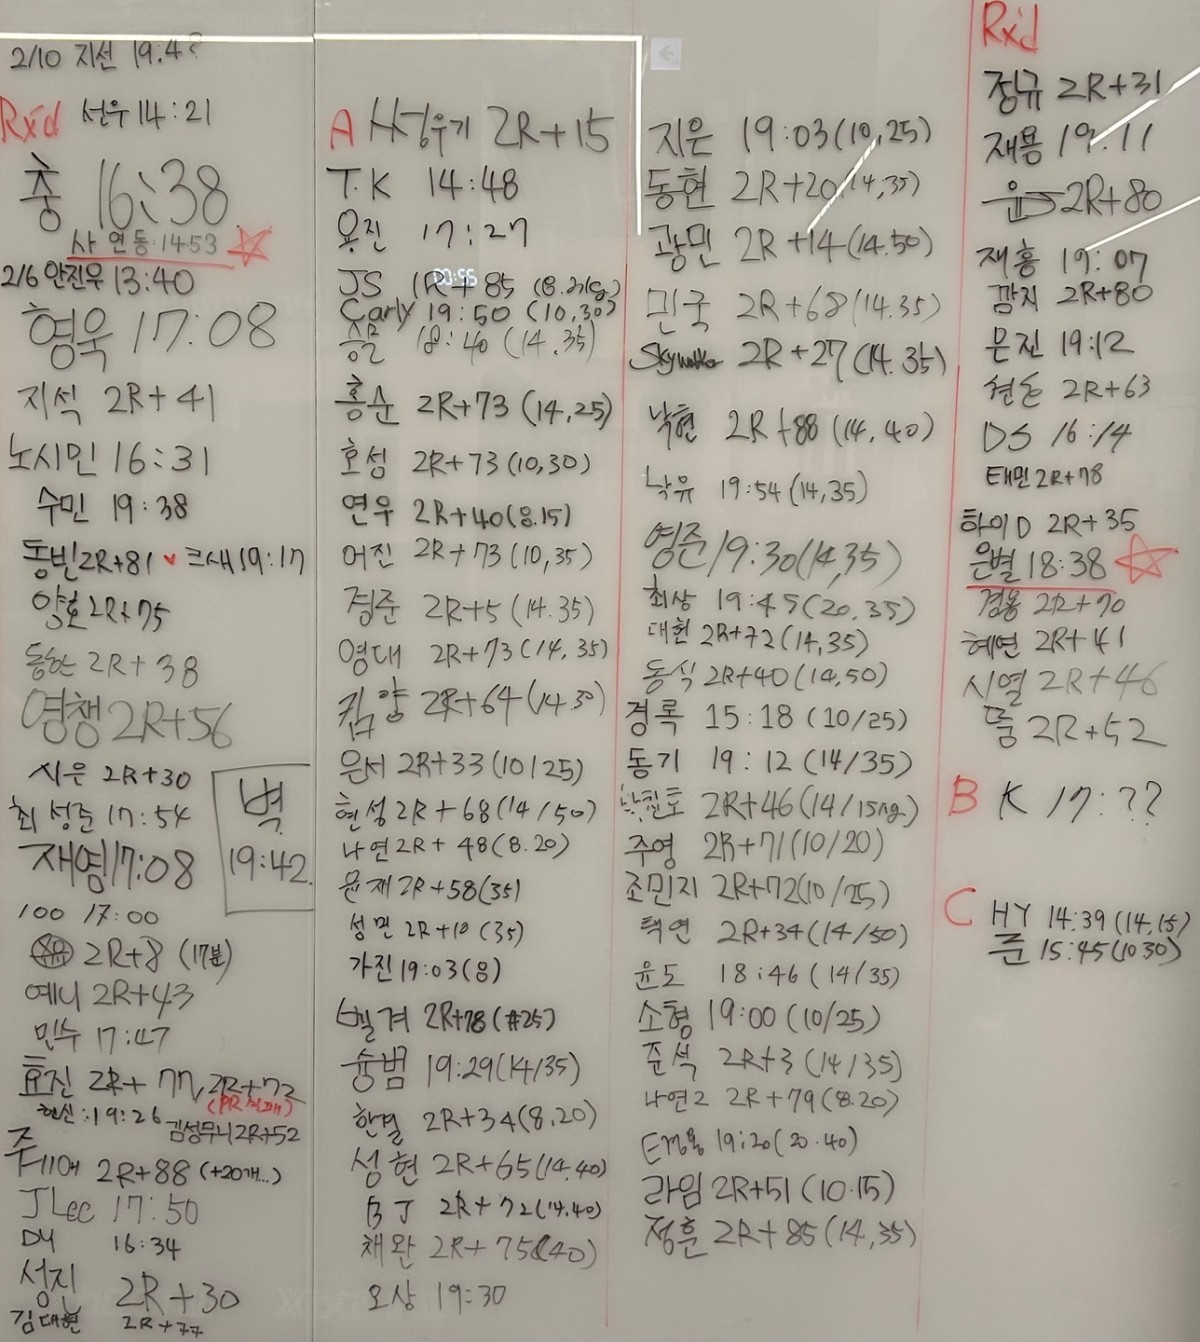 2/10 지선 19:4?
Rx'd 선우 14:21
충 16:38
샤 연동 14:53
2/6 안진우 13:40
형욱 17:08
지석 2R+41
노시민 16:31
수민 19:38
동빈 2R+81 크새 19:17
양호 2R+75
동한 2R+38
영챙 2R+56
시은 2R+30
최성준 17:54
재영 17:08
벽
19:42
100 17:00
2R+8 (17분)
예니 2R+43
민수 17:47
효진 2R+77, 2R+73
현신 : 19:26 김성무니 2R+52
2R+88 (+20개...)
J Lee 17:50
DY 16:34
성진 2R+30
김대현 2R+77
A 샤성우기 2R+15
T.K 14:48
용진 17:27
JS 1R+85
Carly 19:50 (10,30)
18:40 (14,35)
홍순 2R+73 (14,25)
호성 2R+73 (10,30)
연우 2R+40 (8.15)
어진 2R+73 (10,35)
경준 2R+5 (14.35)
영대 2R+73 (14,35)
킴양 2R+64 (14.30)
은서 2R+33 (10/25)
현성 2R+68 (14/50)
나연 2R+48 (8.20)
윤재 2R+58 (35)
성민 2R+10 (35)
가진 19:03 (8)
2R+78 (#25)
슝범 19:29 (14/35)
한별 2R+34 (8,20)
성현 2R+65 (14.40)
BJ 2R+72 (14.40)
채완 2R+75 (40)
오상 19:30
지은 19:03 (10,25)
동현 2R+20 (14,35)
광민 2R+14 (14.50)
민국 2R+68 (14.35)
Skywalker 2R+27 (14.35)
낙현 2R+88 (14,40)
낙유 19:54 (14,35)
영준 19:30 (14,35)
최상 19:45 (20,35)
대헌 2R+72 (14,35)
동식 2R+40 (14,50)
경록 15:18 (10/25)
동기 19:12 (14/35)
2R+46 (14/15kg)
주영 2R+71 (10/20)
조민지 2R+72 (10/25)
택연 2R+34 (14/50)
윤도 18:46 (14/35)
소형 19:00 (10/25)
준석 2R+3 (14/35)
나연2 2R+79 (8.20)
19:20 (20.40)
라임 2R+51 (10.15)
정훈 2R+85 (14,35)
Rx'd
정규 2R+31
재용 19:11
윤 2R+80
재홍 19:07
깜지 2R+80
문진 19:12
현돈 2R+63
DS 16:14
태민 2R+78
하이D 2R+35
은별 18:38
경용 2R+70
혜연 2R+41
시열 2R+46
뚱 2R+52
B K 17:??
C HY 14:39 (14,15)
준 15:45 (10.30)